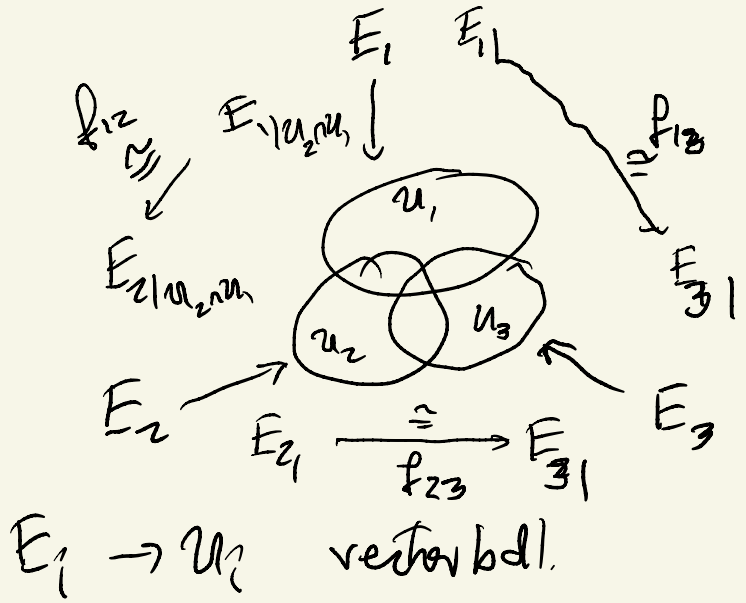 E₁ E₁|
f₁₂ ≅ E₁|U₂∩U₁ ≅ f₁₃
U₁
E₂|U₂∩U₁ E₃|
U₂ U₃
E₂ E₃
E₂| ≅ E₃|
f₂₃
Eᵢ → Uᵢ vector bdl.